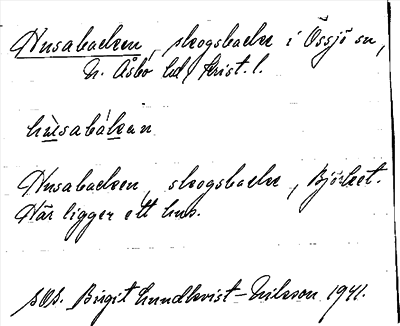 Husabacken, skogsbacke i Össjö sn,
N. Åsbo hd, Krist. l.
Husabacken, skogsbacke, Björket.
Här ligger ett hus.
Birgit Lundkvist-Nilsson 1941.